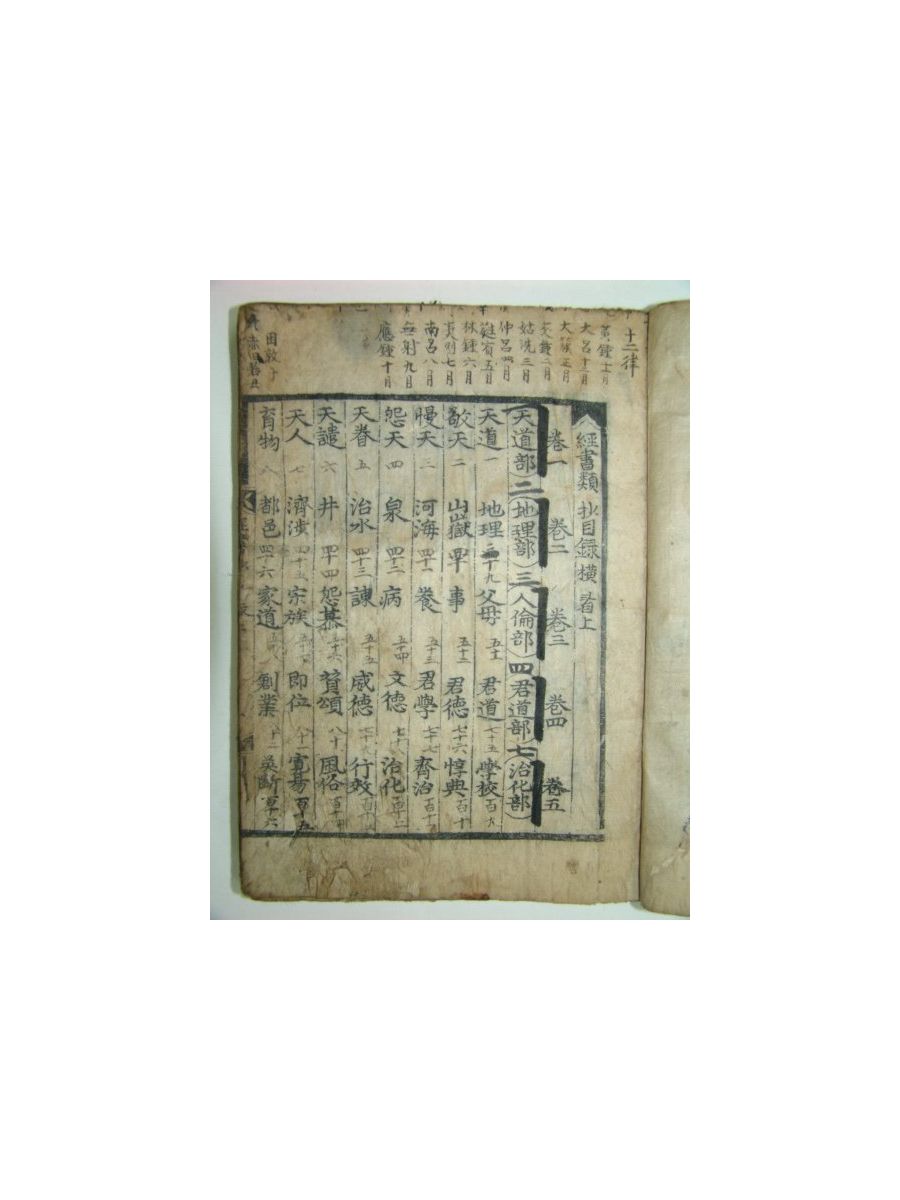 十二律
黃鍾十一月
大呂十二月
太簇正月
夾鍾二月
姑洗三月
仲呂四月
蕤賓五月
林鍾六月
夷則七月
南呂八月
無射九月
應鍾十月
經書類抄目錄 橫看上
卷一 卷二 卷三 卷四 卷五
天道部 二 地理部 三 人倫部 四 君道部 七 治化部
天道 一 地理 三十九 父母 五十 君道 七十五 學校 百九
敬天 二 山嶽 四十 事 五十二 君德 七十六 惇典 百十
慢天 三 河海 四十一 養 五十三 君學 七十七 齊治 百十一
怨天 四 泉 四十二 病 五十四 文德 七十八 治化 百十二
天眷 五 治水 四十三 諫 五十五 威德 七十九 行效
天譴 六 井 四十四 怨慕 五十六 贊頌 八十 風俗
天人 七 濟涉 四十五 宗族 卽位 八十一
育物 八 都邑 四十六 家道 創業 八十二